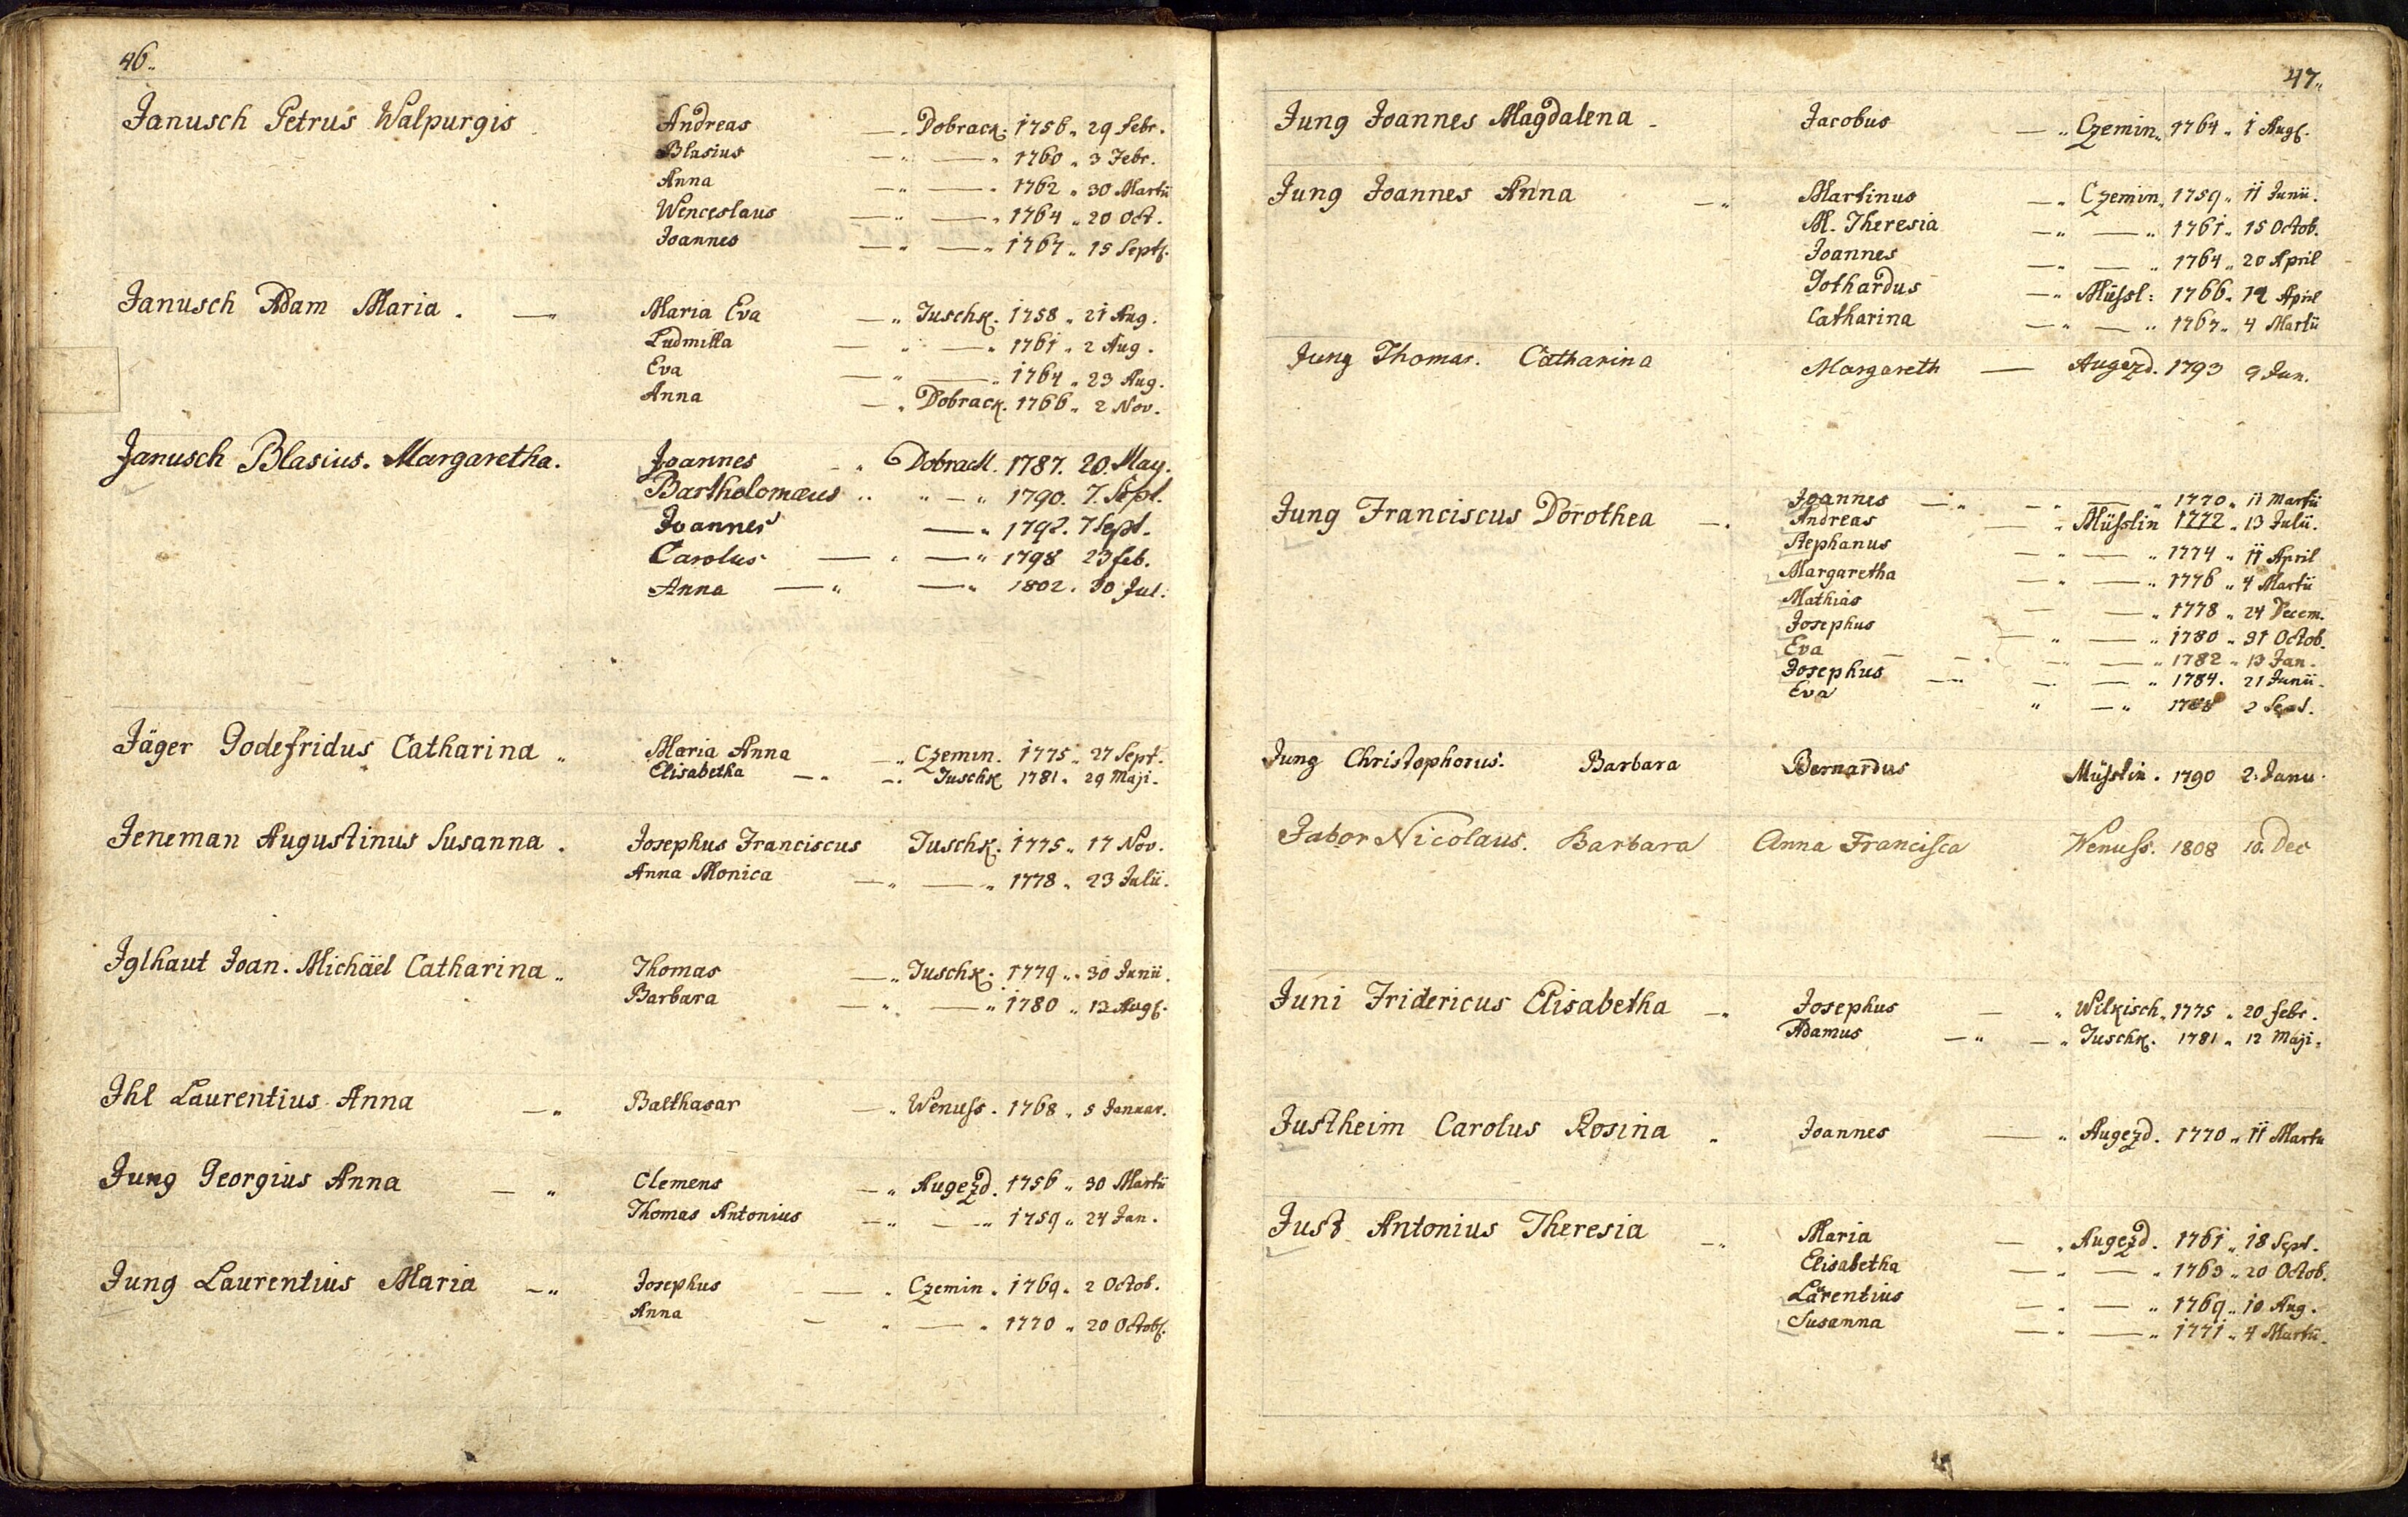 46..
Janusch Petrus Walpurgis Andreas —„ Dobrack. 1756 „ 29 Febr.
Blasius —„ —„ 1760 „ 3 Febr.
Anna —„ —„ 1762 „ 30 Martii
Wenceslaus —„ —„ 1764 „ 20 Oct.
Joannes —„ —„ 1767 „ 15 Sept.
Janusch Adam Maria . —„ Maria Eva —„ Tuschk. 1758 „ 21 Aug.
Ludmilla —„ —„ 1761 „ 2 Aug.
Eva —„ —„ 1764 „ 23 Aug.
Anna —„ Dobrack. 1766 „ 2 Nov.
Janusch Blasius. Margaretha. Joannes -„ Dobrack. 1787. 20. May.
Bartholomæus „ „—„ 1790. 7. Sept.
Joannes —„ 1792. 7 Sept.
Carolus —„ —„ 1798 23 feb.
Anna —„ —„ 1802. 30 Jul.
Jäger Godefridus Catharina „ Maria Anna —„ Czemin. 1775 „ 27 Sept.
Elisabetha —„ —„ Tuschk 1781 „ 29 Maji.
Jeneman Augustinus Susanna . Josephus Franciscus Tuschk. 1775 „ 17 Nov.
Anna Monica —„ —„ 1778 „ 23 Julii.
Iglhaut Joan. Michäel Catharina „ Thomas —„ Tuschk. 1779 „ 30 Junii.
Barbara —„ —„ 1780 „ 12 Aug.
Ihl Laurentius Anna —„ Balthasar —„ Wenuss. 1768 „ 5 Januar.
Jung Georgius Anna —„ Clemens —„ Augezd. 1756 „ 30 Martii
Thomas Antonius —„ —„ 1759 „ 24 Jan.
Jung Laurentius Maria —„ Josephus —„ Czemin. 1769 „ 2 Octob.
Anna —„ —„ 1770 „ 20 Octob.
47„
Jung Joannes Magdalena - Jacobus —„ Czemin. 1764 „ 1 Aug.
Jung Joannes Anna —„ Martinus —„ Czemin. 1759 „ 11 Junii.
M. Theresia —„ —„ 1761 „ 15 Octob.
Joannes —„ —„ 1764 „ 20 April
Gothardus —„ Müssl: 1766 „ April
Catharina —„ —„ 1767 „ 4 Martii
Jung Thomas. Catharina Margareth — Augezd. 1793 9 Jun.
Jung Franciscus Dorothea —„ Joannes —„ —„ —„ 1770 „ 11 Martii
Andreas —„ Müsslin 1772 „ 13 Julii.
Stephanus —„ —„ 1774 „ 11 April
Margaretha —„ —„ 1776 „ 4 Martii
Mathias — —„ 1778 „ 24 Decem.
Josephus —„ —„ 1780 „ 31 Octob.
Eva —„ —„ —„ 1782 „ 13 Jan.
Josephus —„ —„ —„ 1784. 21 Junii.
Eva „ —„ 2 Sept.
Jung Christophorus. Barbara Bernardus Müsslin. 1790 2. Janu.
Jabor Nicolaus. Barbara Anna Francisca Wenuss. 1808 10. Dec
Juni Fridericus Elisabetha —„ Josephus —„ Wilkisch. 1775 „ 20 febr.
Adamus —„ —„ Tuschk. 1781 „ 12 Maji.
Justheim Carolus Rosina „ Joannes —„ Augezd. 1770 „ 11 Martii
Just Antonius Theresia —„ Maria —„ Augezd. 1761 „ 18 Sept.
Elisabetha —„ —„ 1763 „ 20 Octob.
Larentius —„ —„ 1769 „ 10 Aug.
Susanna —„ —„ 1771 „ 4 Martii.